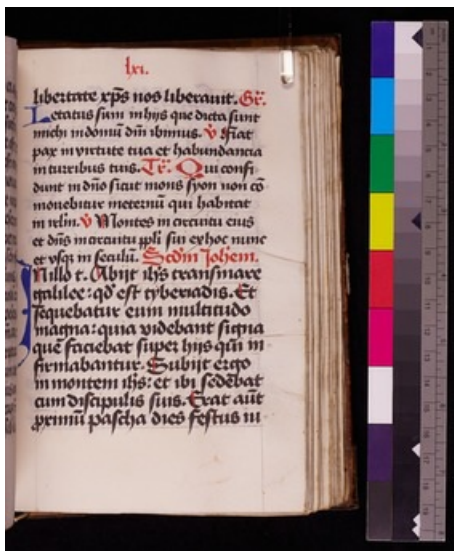 lxi.
libertate xp̄s nos liberavit. Gr̄.
Letatus sum in hijs que dicta sunt
michi in domū dn̄i ibimus. v̄ Fiat
pax in virtute tua et habundancia
in turribus tuis. Tr̄. Qui confi
dunt in dn̄o sicut mons syon non cō
movebitur in eternū qui habitat
in irlm̄. v̄ Montes in circuitu eius
et dn̄s in circuitu ppli sui ex hoc nunc
et vsq in seculū. Scdm Johem.
In illo t. Abijt ihs trans mare
galilee: qd est tyberiadis. Et
sequebatur eum multitudo
magna: quia videbant signa
que faciebat super hijs qui in
firmabantur. Subijt ergo
in montem ihs: et ibi sedebat
cum discipulis suis. Erat aūt
proximū pascha dies festus iu